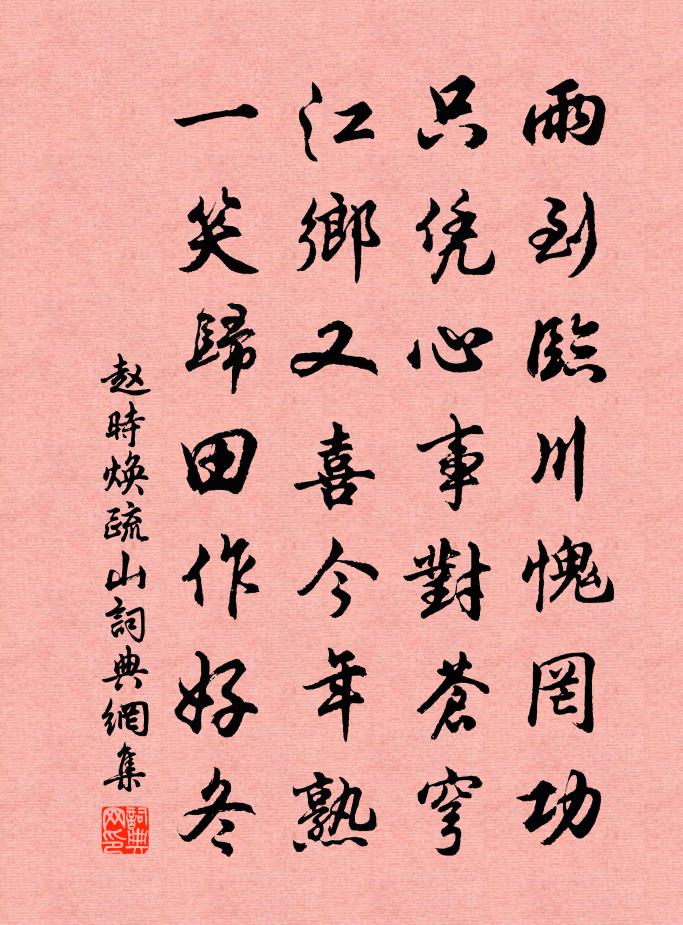 雨到臨川愧罔功
只凭心事對蒼穹
江鄉又喜今年熟
一笑歸田作好冬
赵時焕疏山詞典網集
詞典网印